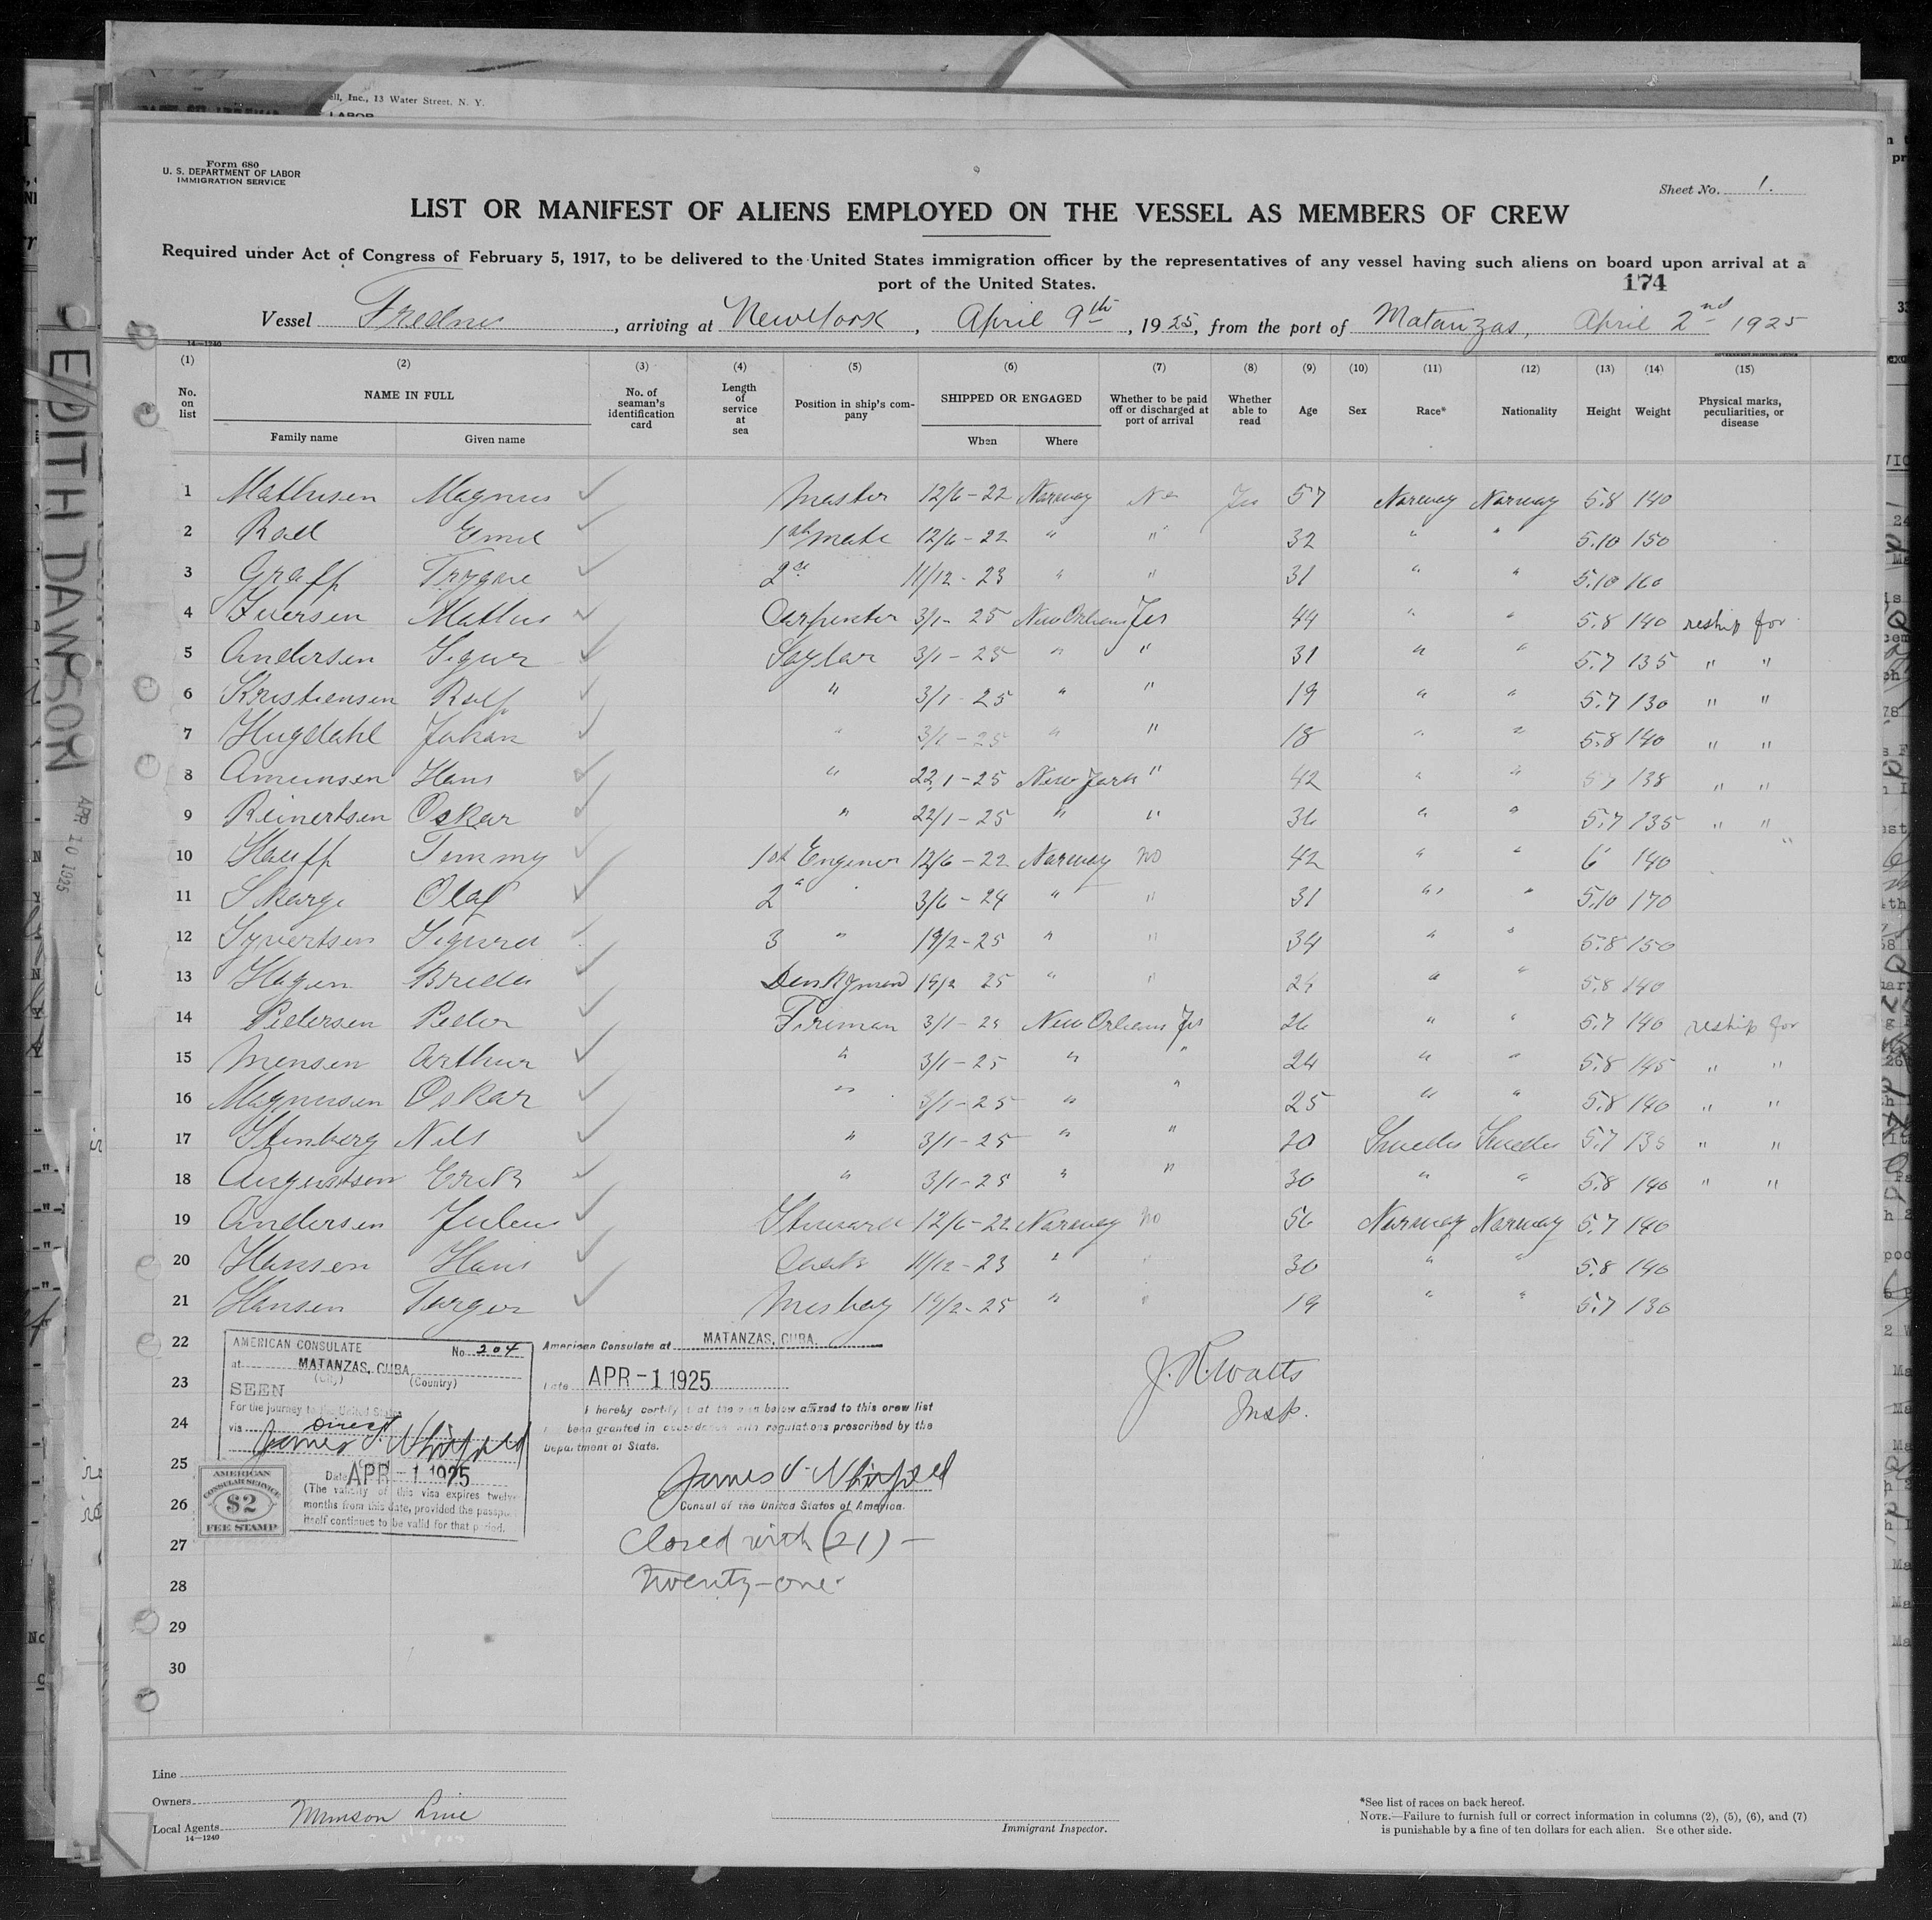 ell, Inc., 13 Water Street, N. Y.
LABOR
Form 680
U. S. DEPARTMENT OF LABOR
IMMIGRATION SERVICE
Sheet No. 1.
LIST OR MANIFEST OF ALIENS EMPLOYED ON THE VESSEL AS MEMBERS OF CREW
Required under Act of Congress of February 5, 1917, to be delivered to the United States immigration officer by the representatives of any vessel having such aliens on board upon arrival at a
port of the United States.
174
Vessel Frednes, arriving at New York, April 9th, 1925, from the port of Matanzas, April 2nd 1925
14—1240
(1) (2) (3) (4) (5) (6) (7) (8) (9) (10) (11) (12) (13) (14) (15)
No. on list NAME IN FULL Family name Given name No. of seaman's identification card Length of service at sea Position in ship's company SHIPPED OR ENGAGED When Where Whether to be paid off or discharged at port of arrival Whether able to read Age Sex Race* Nationality Height Weight Physical marks, peculiarities, or disease
1 Mathisen Magnus Master 12/6-22 Norway No Yes 57 Norway Norway 5.8 140
2 Roed Emil 1st mate 12/6-22 " " 32 " " 5.10 150
3 Graff Trygve 2 11/12-23 " " 31 " " 5.10 160
4 Iversen Mathus Carpenter 3/1-25 New Orleans Yes 44 " " 5.8 140 reship for
5 Andersen Sigur Saylor 3/1-25 " " 31 " " 5.7 135 " "
6 Kristiensen Rolf " 3/1-25 " " 19 " " 5.7 130 " "
7 Hugdahl Johan " 3/1-25 " " 18 " " 5.8 140 " "
8 Amunsen Hans " 22/1-25 New York " 42 " " 5.7 138 " "
9 Reinertsen Oskar " 22/1-25 " " 36 " " 5.7 135 " "
10 Hauff Tommy 1st Enginer 12/6-22 Norway no 42 " " 6' 140 "
11 Skarge Olaf 2 " 3/6-24 " " 31 " " 5.10 170
12 Syvertsen Sigurd 3 " 19/2-25 " " 34 " " 5.8 150
13 Hagen Breder Donkyman 19/2 25 " " 24 " " 5.8 140
14 Pedersen Peder Fireman 3/1-25 New Orleans Yes 26 " " 5.7 140 reship for
15 Monsen Arthur " 3/1-25 " " 24 " " 5.8 145 " "
16 Magnusen Oskar " 3/1-25 " " 25 " " 5.8 140 " "
17 Stenberg Nils " 3/1-25 " " 20 Sweden Sweden 5.7 135 " "
18 Augustsen Erik " 3/1-25 " " 30 " " 5.8 140 " "
19 Andersen Julius Steward 12/6-22 Norway no 56 Norway Norway 5.7 140
20 Hansen Hans Cook 11/12-23 " " 30 " " 5.8 140
21 Hansen Torger Messboy 19/2-25 " " 19 " " 5.7 130
22
23
24
25
26
27
28
29
30
AMERICAN CONSULATE No. 204
at MATANZAS, CUBA
(City) (Country)
SEEN
For the journey to the United States
via Direct
Date APR -1 1925
(The validity of this visa expires twelve
months from this date, provided the passport
itself continues to be valid for that period.
AMERICAN
CONSULAR SERVICE
$2
FEE STAMP
American Consulate at MATANZAS, CUBA.
Date APR -1 1925
I hereby certify that the visa below affixed to this crew list
has been granted in accordance with regulations prescribed by the
Department of State.
Consul of the United States of America.
Closed with (21) —
Twenty-one.
J. R. Watts
Insp.
Line
Owners
Local Agents Munson Line
14—1240
Immigrant Inspector.
*See list of races on back hereof.
NOTE.—Failure to furnish full or correct information in columns (2), (5), (6), and (7)
is punishable by a fine of ten dollars for each alien. See other side.
EDITH DAWSON
APR 10 1925